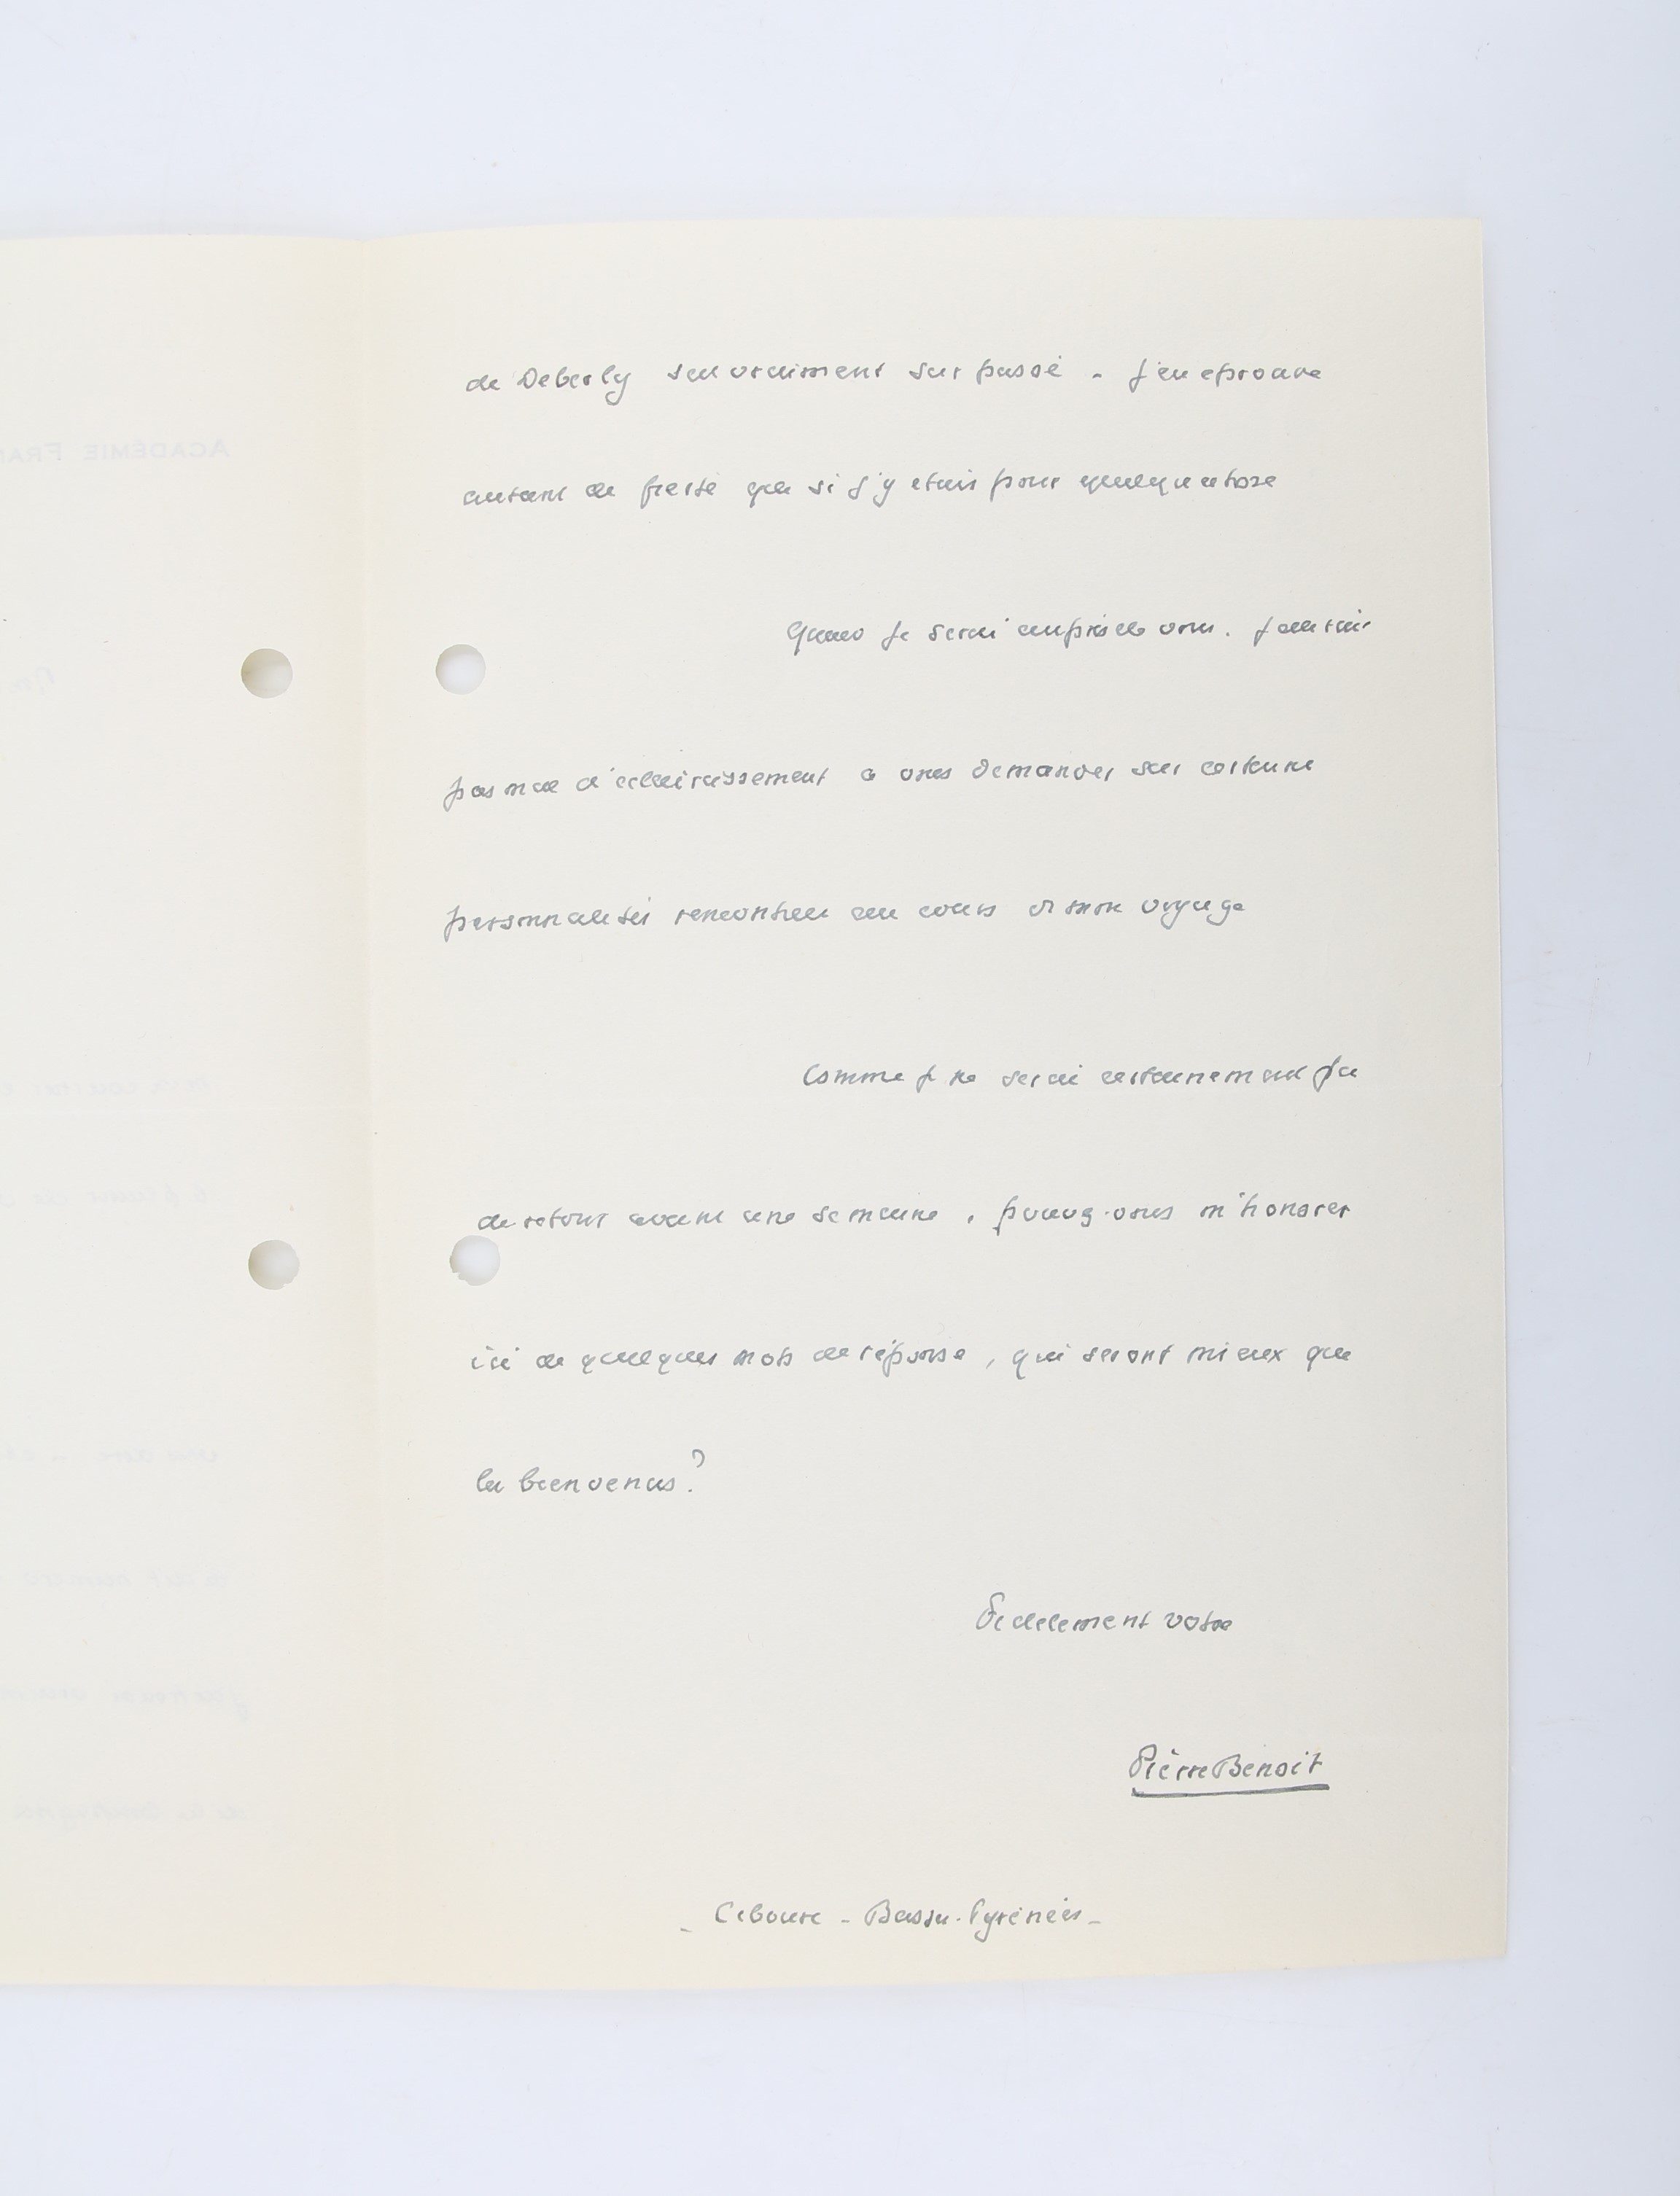 ACADÉMIE FRAN
de Deberly s'est vraiment surpassé - J'en eprouve
autant de fierté que si j'y etais pour quelque chose
Quand je serai auprès de vous, j'aurai
pas mal d'éclaircissement a vous demander sur certaines
personnalités rencontrées au cours de mon voyage
Comme je ne serai certainement pas
de retour avant une semaine, pouvez-vous m'honorer
ici de quelques mots de réponse, qui seront mieux que
les bienvenus?
Fidelement votre
Pierre Benoit
- Ciboure - Basses-Pyrénées -